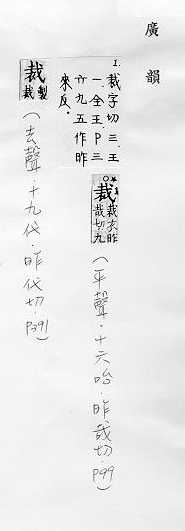 廣韻
1. 裁字切三、王
一、全王、P三
六九五作昨
來反。
裁 裁衣昨哉切九
(平聲.十六咍.昨哉切.P99)
裁 製裁
(去聲.十九代.昨代切.P391)